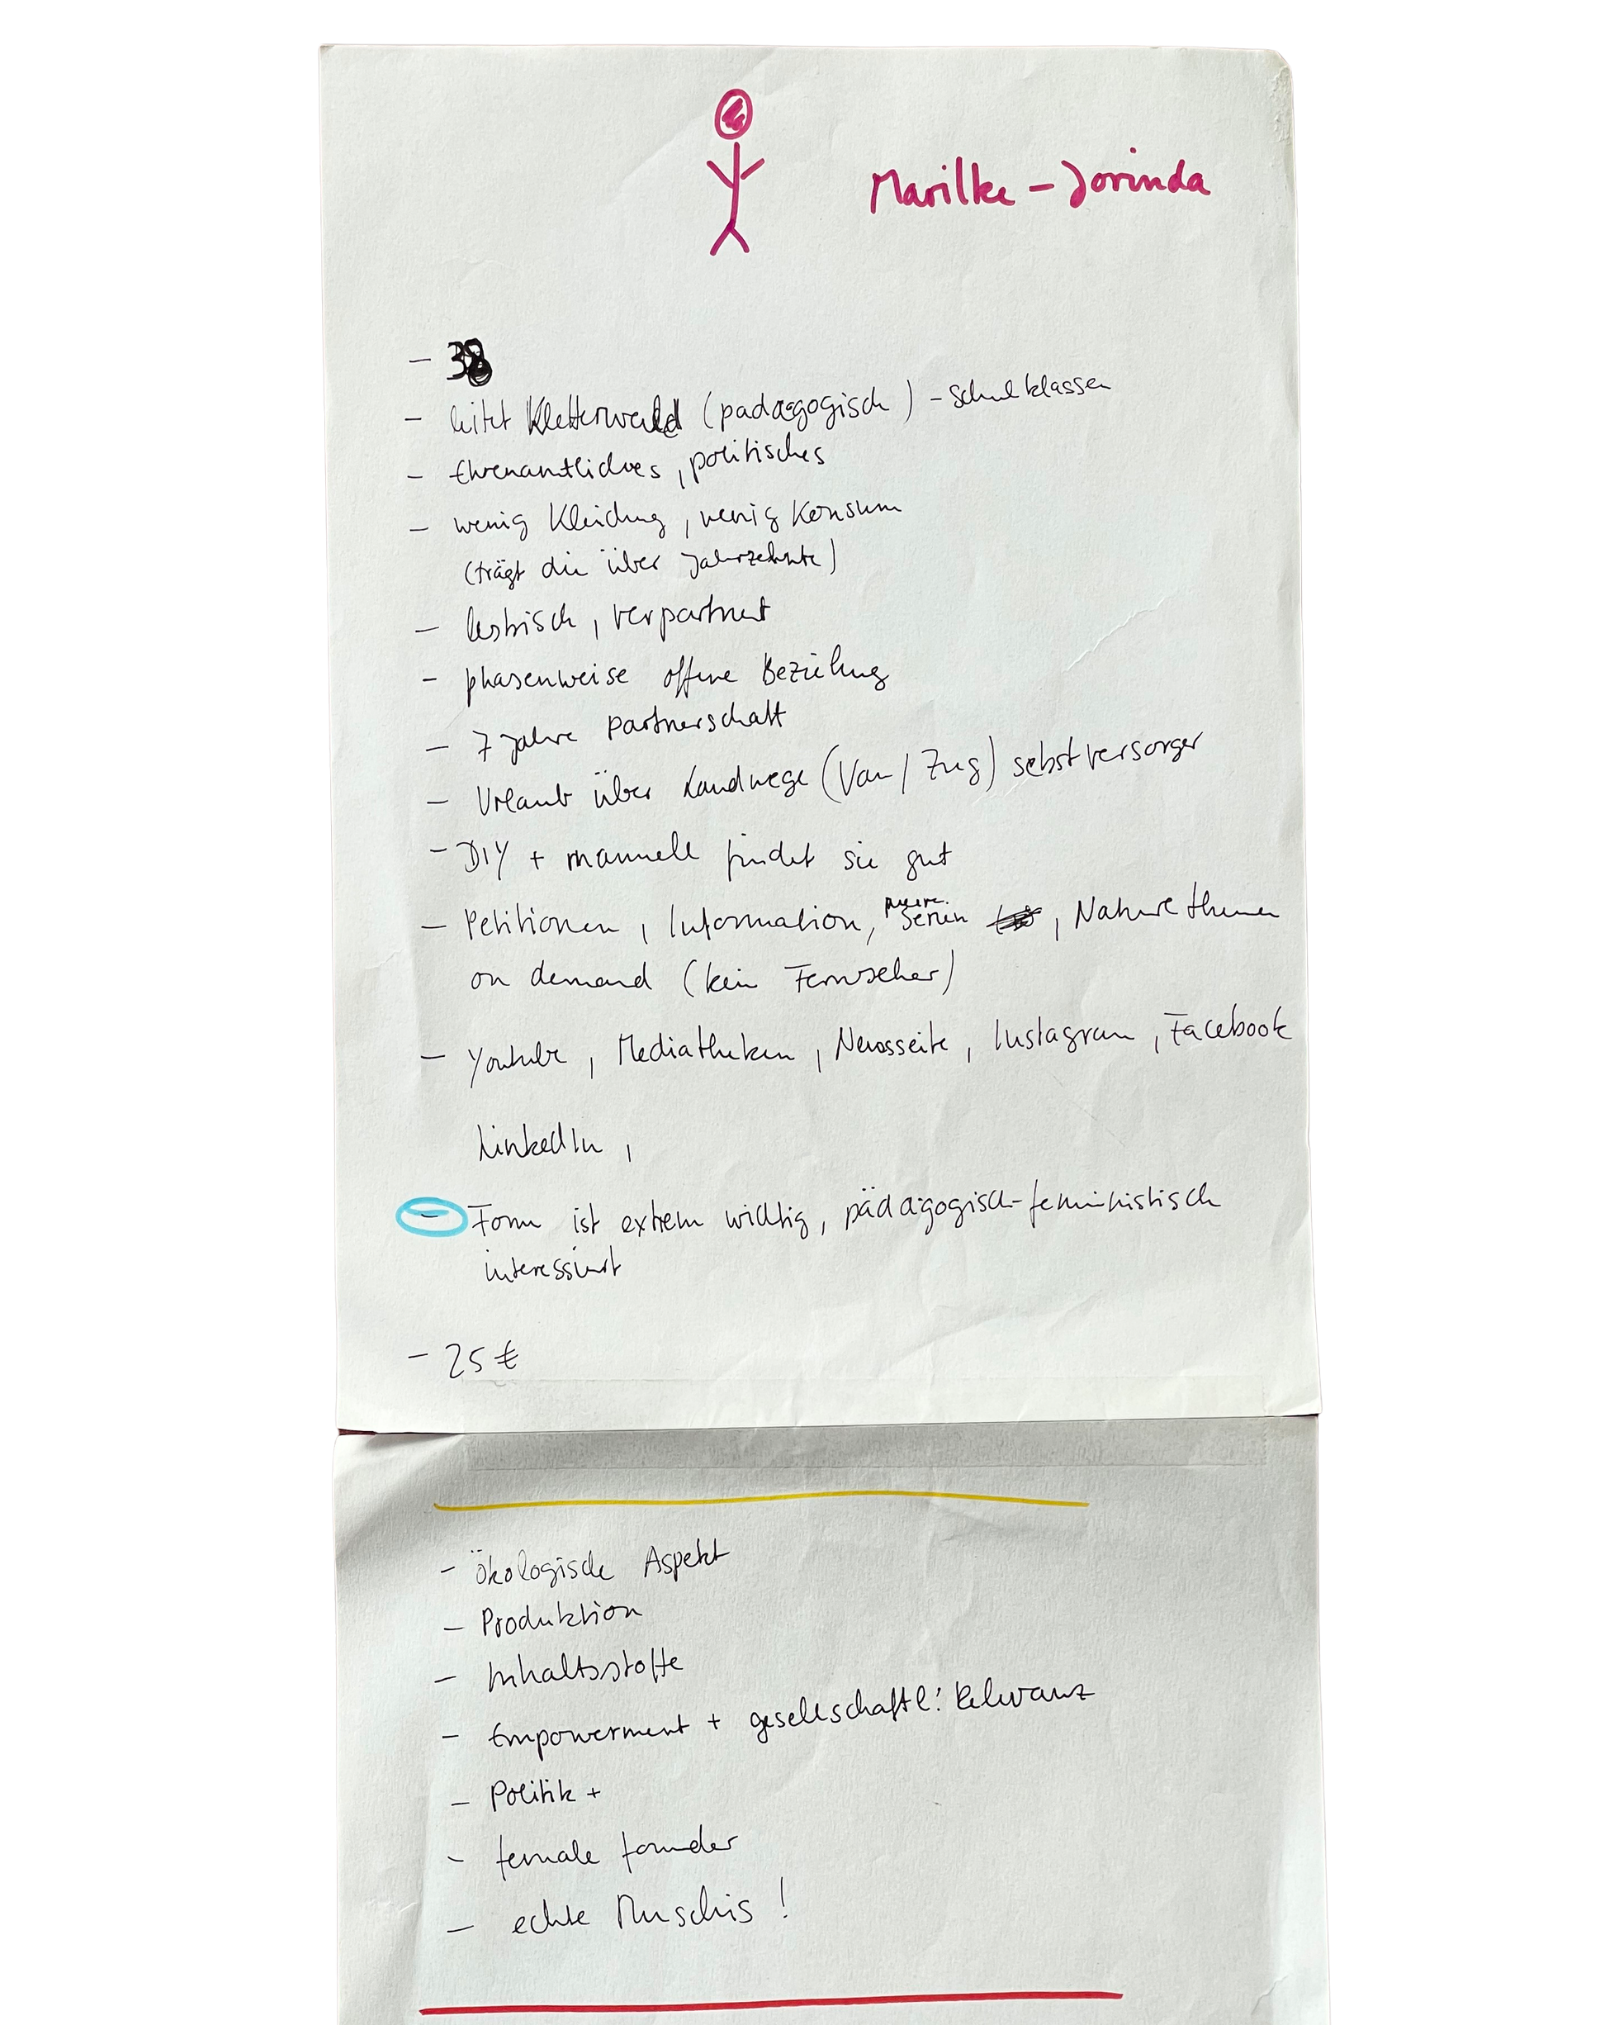 Marilke - Jorinda
- 38
- leitet Kletterwald (pädagogisch) - Schulklassen
- Ehrenamtliches, politisches
- wenig Kleidung, wenig Konsum
(trägt die über Jahrzehnte)
- lesbisch, verpartnert
- phasenweise offene Beziehung
- 7 Jahre Partnerschaft
- Urlaub über Landwege (Van / Zug) selbstversorger
- DIY + manuell findet sie gut
- Petitionen, Information, Serien, Nature themen
on demand (kein Fernseher)
- Youtube, Mediatheken, Newsseite, Instagram, Facebook
LinkedIn,
- Form ist extrem wichtig, pädagogisch-feministisch
interessiert
- 25 €
- ökologische Aspekt
- Produktion
- Inhaltsstoffe
- Empowerment + gesellschaftl. Relevanz
- Politik +
- female founder
- echte Muschis!